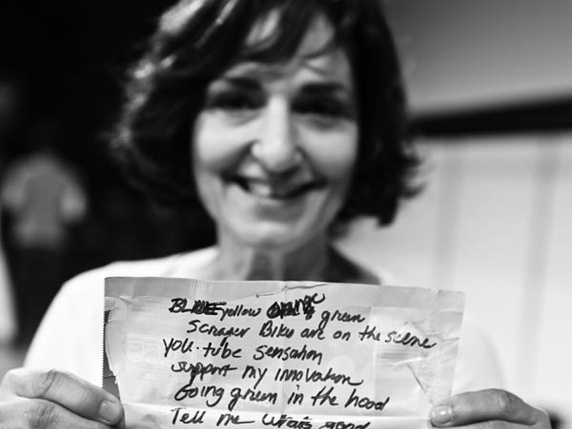 BLUE yellow orange & green
Scraper Bike are on the scene
you-tube sensation
support my innovation
Going green in the hood
Tell me what's good